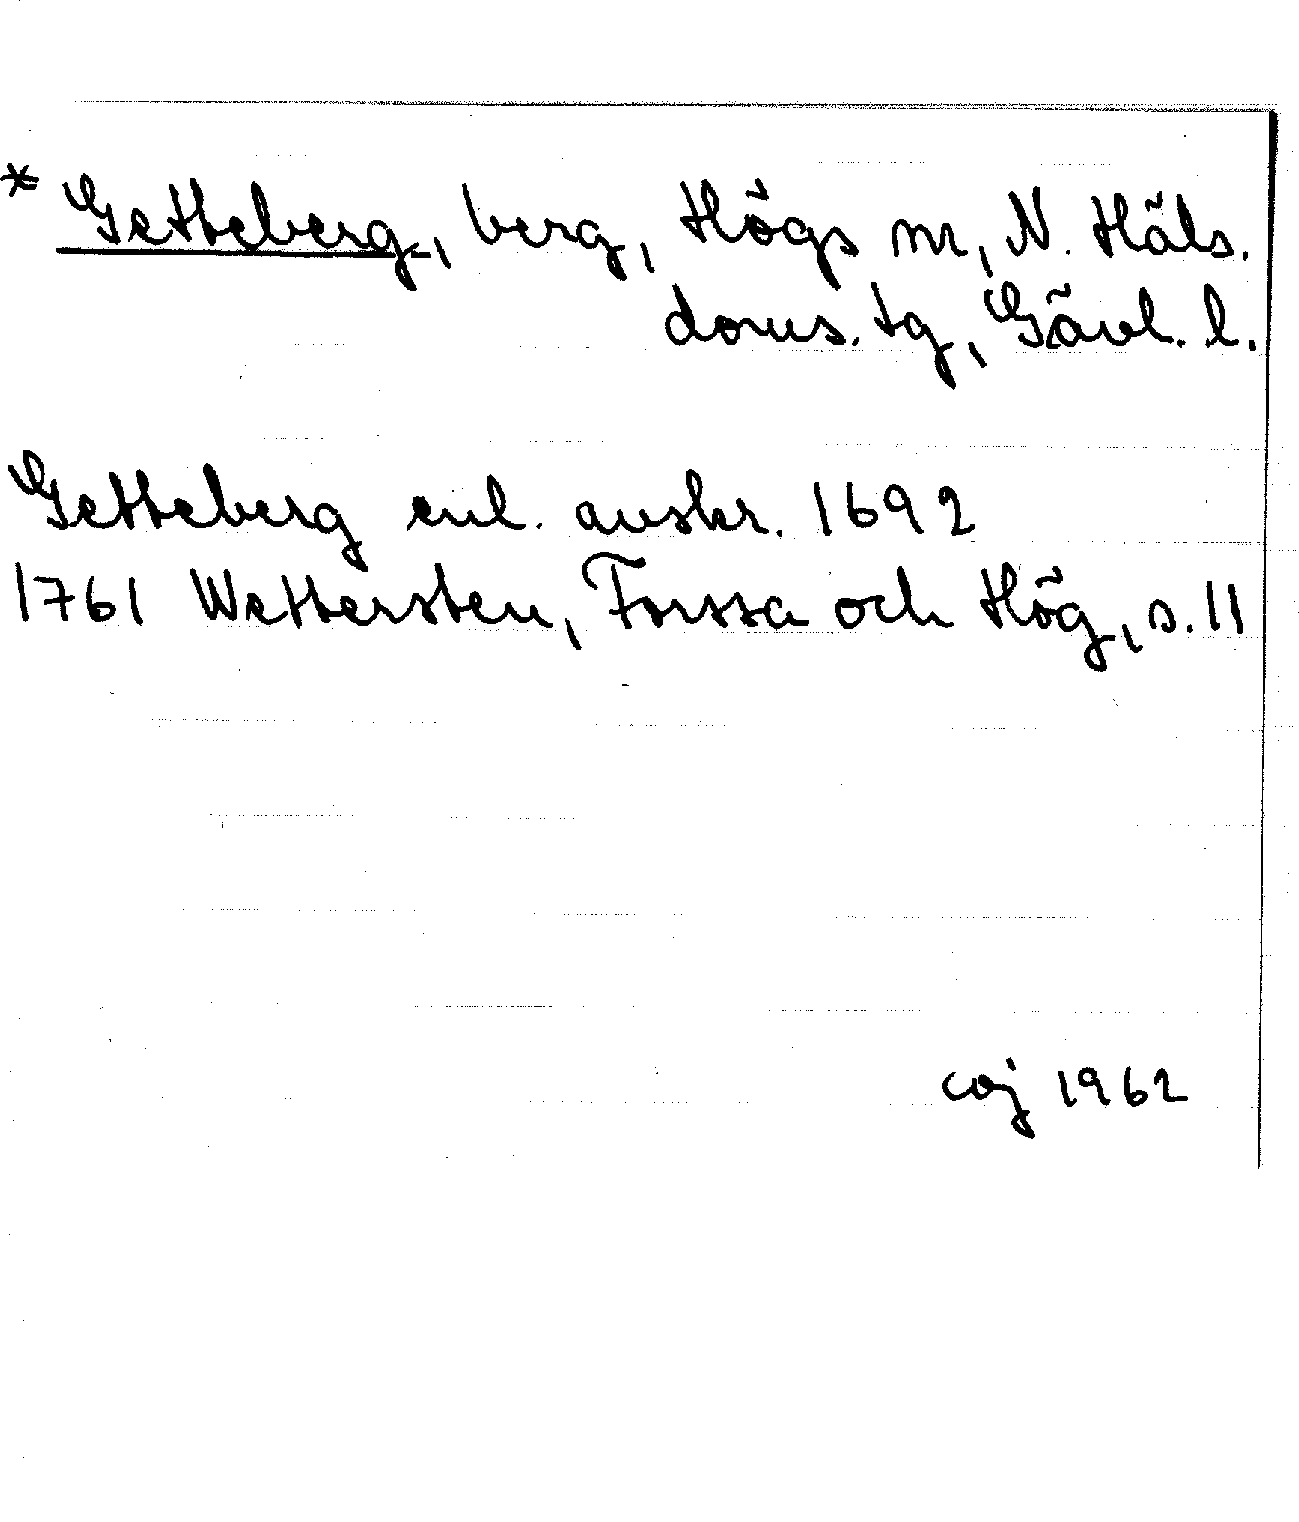 * Getteberg, berg, Högs sn, N. Häls.
doms. tg, Gävl. l.
Getteberg enl. avskr. 1692
1761 Wettersten, Forssa och Hög, s. 11
coj 1962